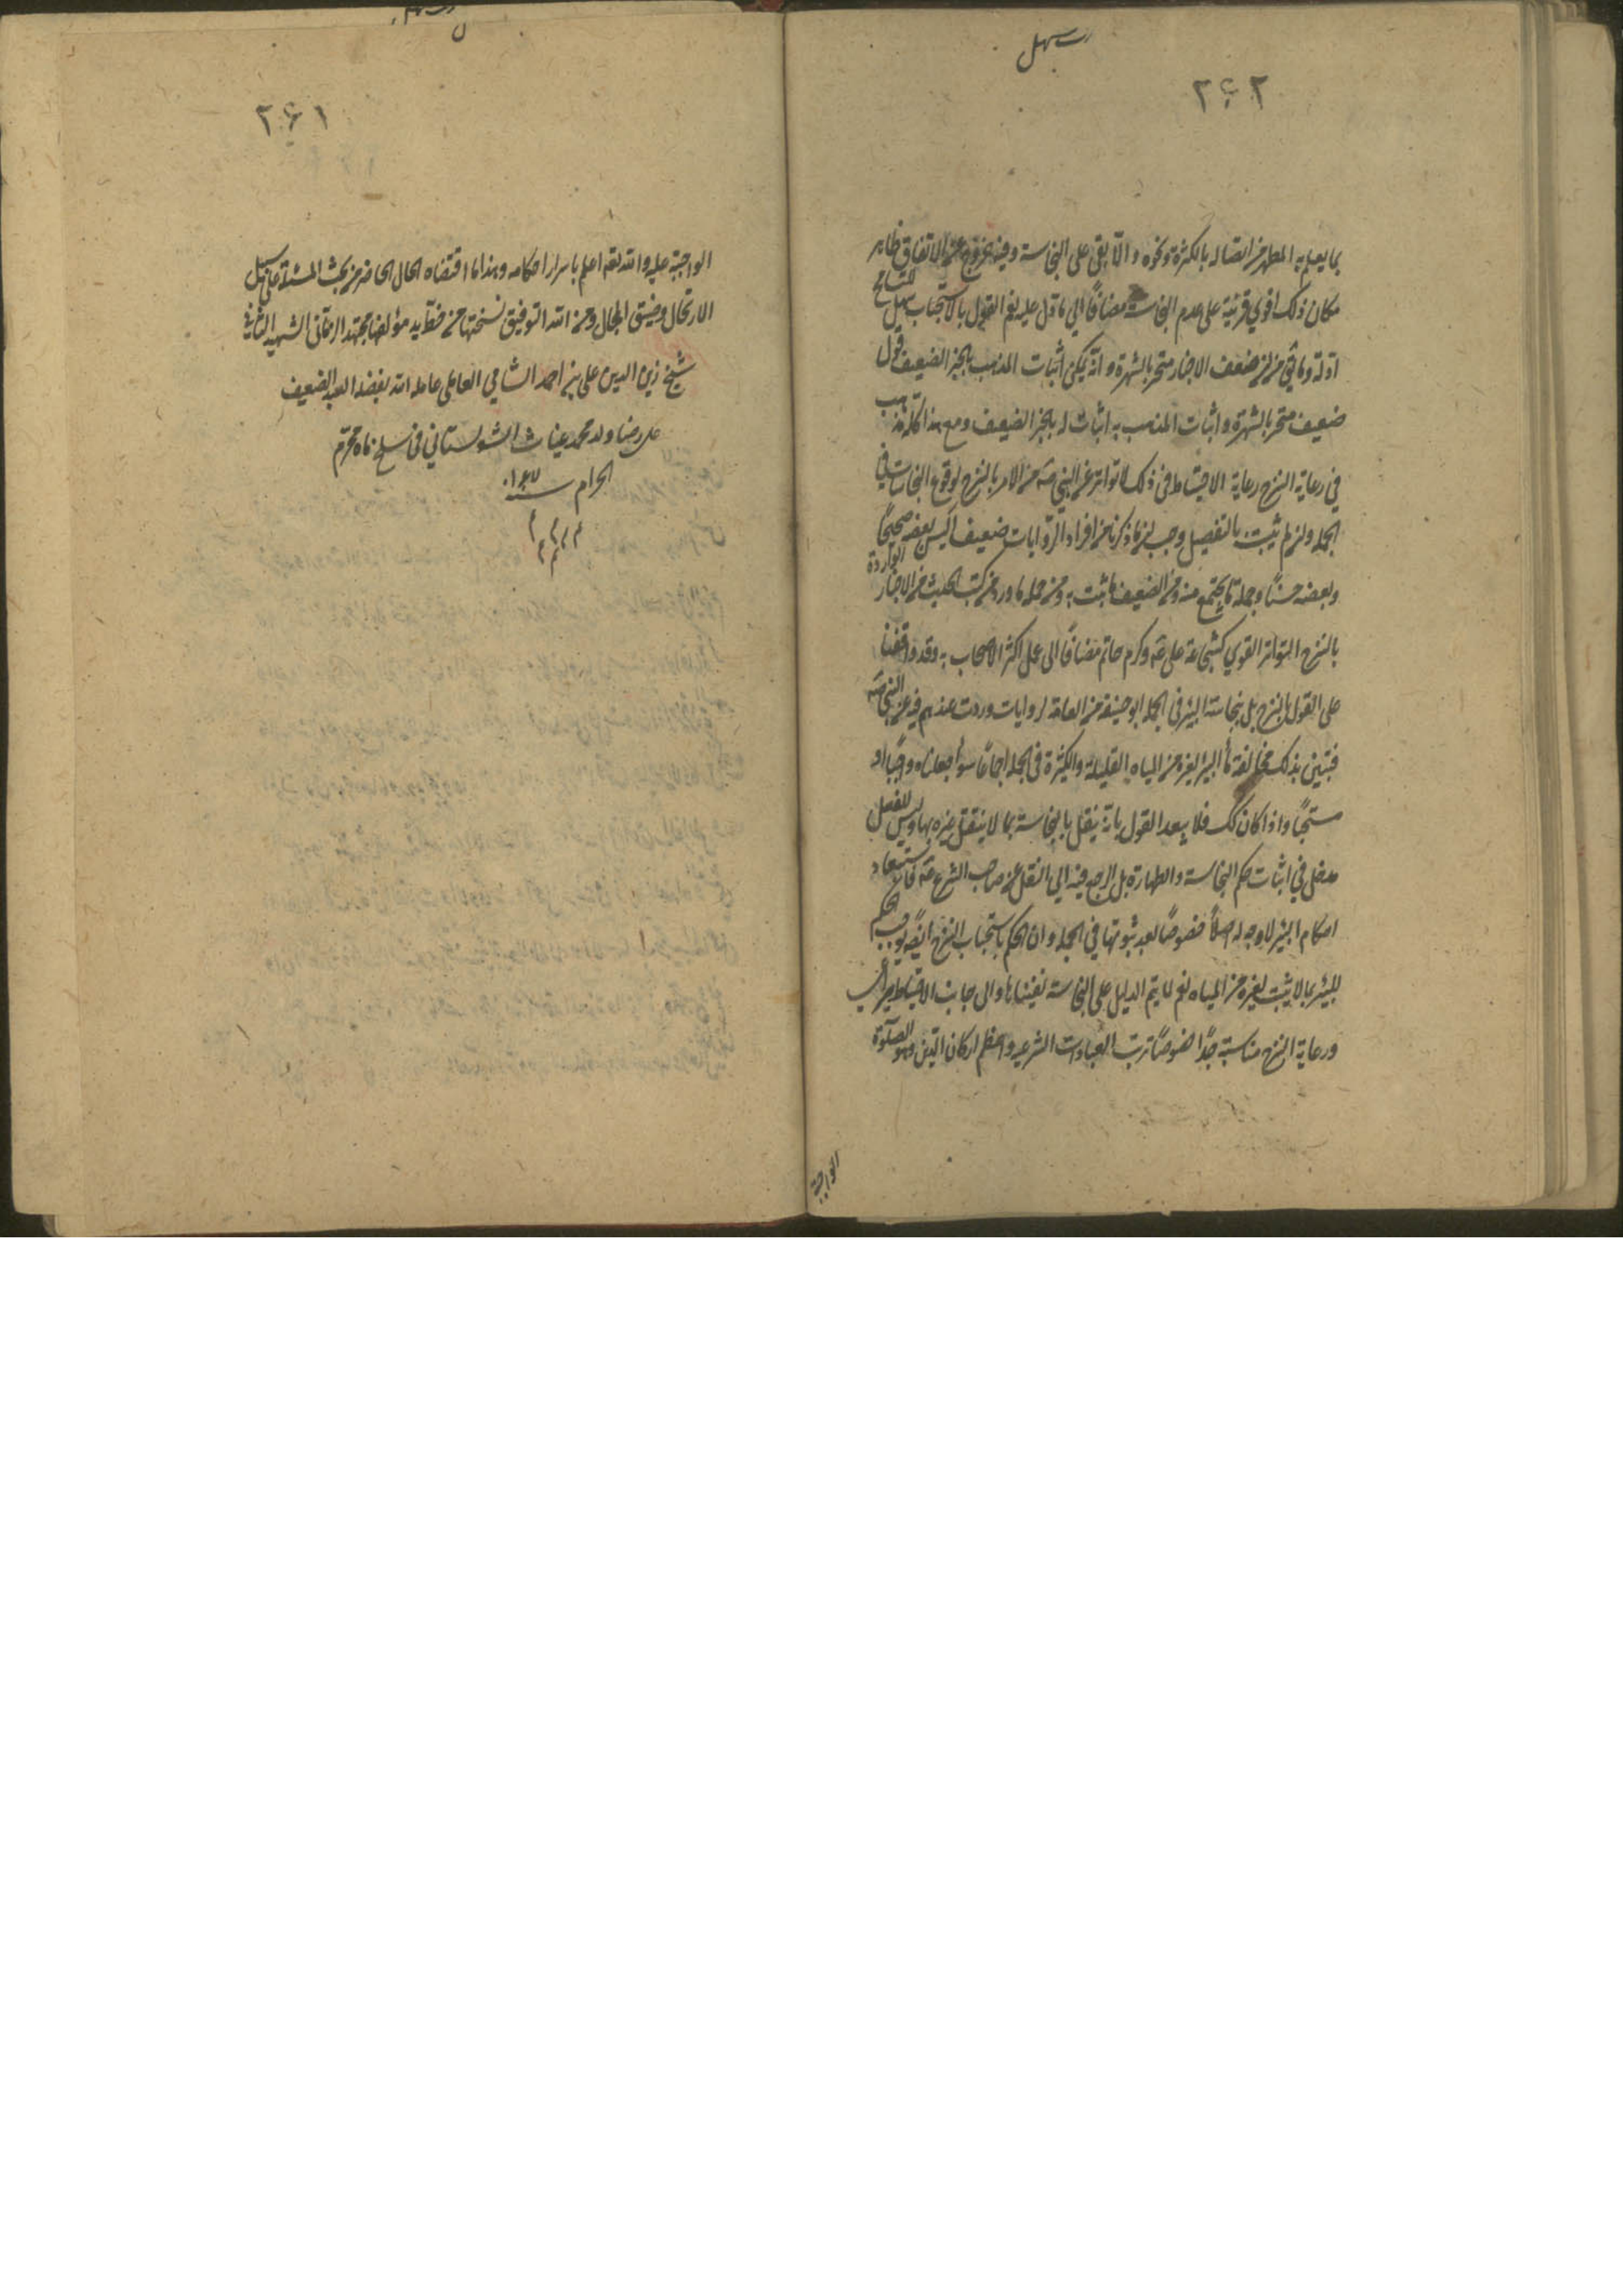 ٢٤٢
بما يعلم به المطهر من اتصاله بالكثرة ونحوه والا بقي على النجاسة وفيه خروج عن الاتفاق ظاهر
مكان ذلك اقوى قرينة على عدم النجاسة مضافا الى ما دل عليه نعم القول بالاستحباب سهل للتسامح
ادلة وما في من ان ضعف الاخبار منجبر بالشهرة وانه يمكن اثبات المذهب بالخبر الضعيف قول
ضعيف منجبر بالشهرة واثبات المذهب به اثبات له بالخبر الضعيف ومع هذا كله
في رعاية النزح رعاية الاحتياط في ذلك لا تواتر عن النبي صه من الامر بالنزح لوقوع النجاسات في
الجملة وان لم يثبت بالتفصيل وجب ان ما ذكرنا من افراد الروايات ضعيف اليس بعضه صحيحا
وبعضه حسنا وجملة ما يجتمع منه ومن الضعيف ما يثبت به ومن جملة ما ورد من كتب الحديث من الاخبار الواردة
بالنزح المتواتر القوي كشجاعة علي عه وكرم حاتم مضافا الى عمل اكثر الاصحاب به وقد وافقنا
على القول بالنزح بل بنجاسة البئر في الجملة ابو حنيفة من العامة لروايات وردت عندهم فيه عن النبي صه
فتبين بذلك مخالفة ماء البئر لغيره من المياه القليلة والكثيرة في الجملة اجماعا سواء جعلناه واجبا او
مستحبا واذا كان كك فلا يبعد القول بانه ينفعل بالنجاسة بما لا ينفعل غيره بها وليس للعقل
مدخل في اثبات حكم النجاسة والطهارة بل المرجع فيه الى النقل عن صاحب الشرع عه فالاستبعاد
احكام البئر لا وجه له اصلا خصوصا بعد ثبوتها في الجملة وان الحكم باستحباب النزح ايضه يوجب الحكم
للبئر بما لا يثبت لغيره من المياه نعم لما يتم الدليل على النجاسة نفيناها والى جانب الاحتياط
ورعاية النزح مناسبة جدا خصوصا ترتب العبادات الشرعيه واعظم اركان الدين وهو الصلوة
الواجبة
٢٤١
الواجبة عليه والله تعه اعلم باسرار احكامه وهذا ما اقتضاه الحال الحاضر من بحث المسئلة على سبيل
الارتحال وضيق المجال ومن الله التوفيق نسختها من خط يد مؤلفها مجتهد الزماني الشهيد الثاني
شيخ زين الدين علي بن احمد الشامي العاملي عامله الله بفضله العبد الضعيف
علي رضا ولد محمد غياث الشولستاني في سلخ ماه محرم
الحرام سنة